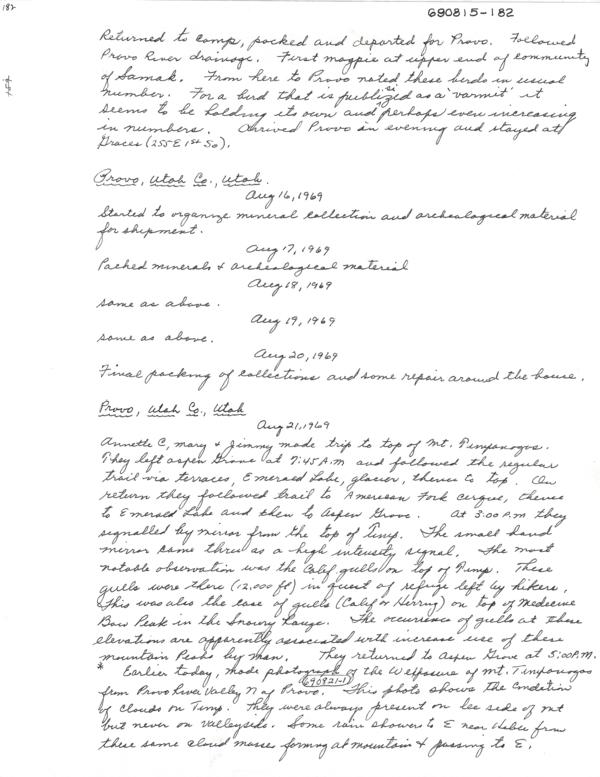 182
690815-182
Returned to camp, packed and departed for Provo. Followed
Provo River drainage. First magpie at upper end of community
of Samak. From here to Provo noted these birds in usual
number. For a bird that is publisized as a "varmit" it
seems to be holding its own and perhaps even increasing
in numbers. Arrived Provo in evening and stayed at
Graces (255 E 1st So).
Provo, Utah Co., Utah.
Aug 16, 1969
Started to organize mineral collection and archealogical material
for shipment.
Aug 17, 1969
Packed minerals & archealogical material
Aug 18, 1969
same as above.
Aug 19, 1969
same as above.
Aug 20, 1969
Final packing of collections and some repair around the house.
Provo, Utah Co., Utah
Aug 21, 1969
Annette C, Mary & Jimmy made trip to top of Mt. Timpanogos.
They left Aspen Grove at 7:45 A.M and followed the regular
trail via terraces, Emerald Lake, glacier, thence to top. On
return they followed trail to American Fork cirque, thence
to Emerald Lake and then to Aspen Grove. At 3:00 P.M they
signalled by mirror from the top of Timp. The small hand
mirror came thru as a high intensity signal. The most
notable observation was the Calif gulls on top of Timp. These
gulls were there (12,000 ft) in quest of refuge left by hikers.
This was also the case of gulls (Calif or Herring) on top of Medecine
Bow Peak in the Snowy Range. The occurrence of gulls at these
elevations are apparently associated with increase use of these
mountain Peaks by man. They returned to Aspen Grove at 5:00 P.M.
* Earlier today, made photograph of the W exposure of Mt. Timpanogos
(690821-1)
from Provo River Valley N of Provo. This photo shows the condition
of clouds on Timp. They were always present on lee side of mt
but never on valleyside. Some rain showers to E near Heber from
these same cloud masses forming at mountain & passing to E.